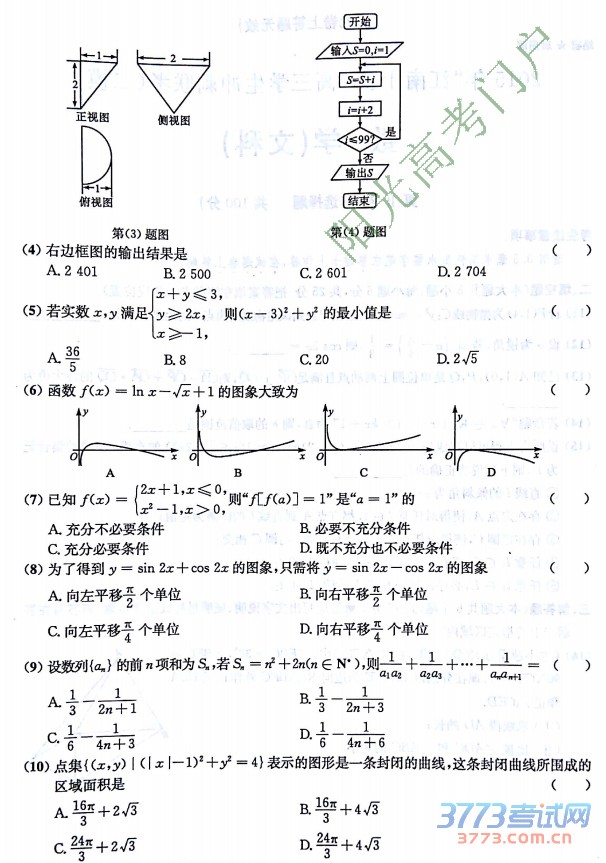 1
2
2
正视图
侧视图
1
俯视图
开始
输入S=0,i=1
S=S+i
i=i+2
i≤99?
是
否
输出S
结束
第(3)题图
第(4)题图
阳光高考门户
(4) 右边框图的输出结果是 ( )
A. 2 401 B. 2 500 C. 2 601 D. 2 704
(5) 若实数 x,y 满足 { x+y≤3, y≥2x, x≥-1, 则(x-3)²+y² 的最小值是 ( )
A. 36/5 B. 8 C. 20 D. 2√5
(6) 函数 f(x)=ln x-√x+1 的图象大致为 ( )
y O x y O x y O x y O x
A B C D
(7) 已知 f(x)= { 2x+1,x≤0, x²-1,x>0, 则“f[f(a)]=1”是“a=1”的 ( )
A. 充分不必要条件 B. 必要不充分条件
C. 充分必要条件 D. 既不充分也不必要条件
(8) 为了得到 y=sin 2x+cos 2x 的图象,只需将 y=sin 2x-cos 2x 的图象 ( )
A. 向左平移 π/2 个单位 B. 向右平移 π/2 个单位
C. 向左平移 π/4 个单位 D. 向右平移 π/4 个单位
(9) 设数列{aₙ} 的前 n 项和为 Sₙ,若 Sₙ=n²+2n(n∈N*),则 1/(a₁a₂)+1/(a₂a₃)+…+1/(aₙaₙ₊₁)= ( )
A. 1/3-1/(2n+1) B. 1/3-1/(2n+3)
C. 1/6-1/(4n+3) D. 1/6-1/(4n+6)
(10) 点集{(x,y)|(|x|-1)²+y²=4} 表示的图形是一条封闭的曲线,这条封闭曲线所围成的
区域面积是 ( )
A. 16π/3+2√3 B. 16π/3+4√3
C. 24π/3+2√3 D. 24π/3+4√3
3773考试网
3773.com.cn